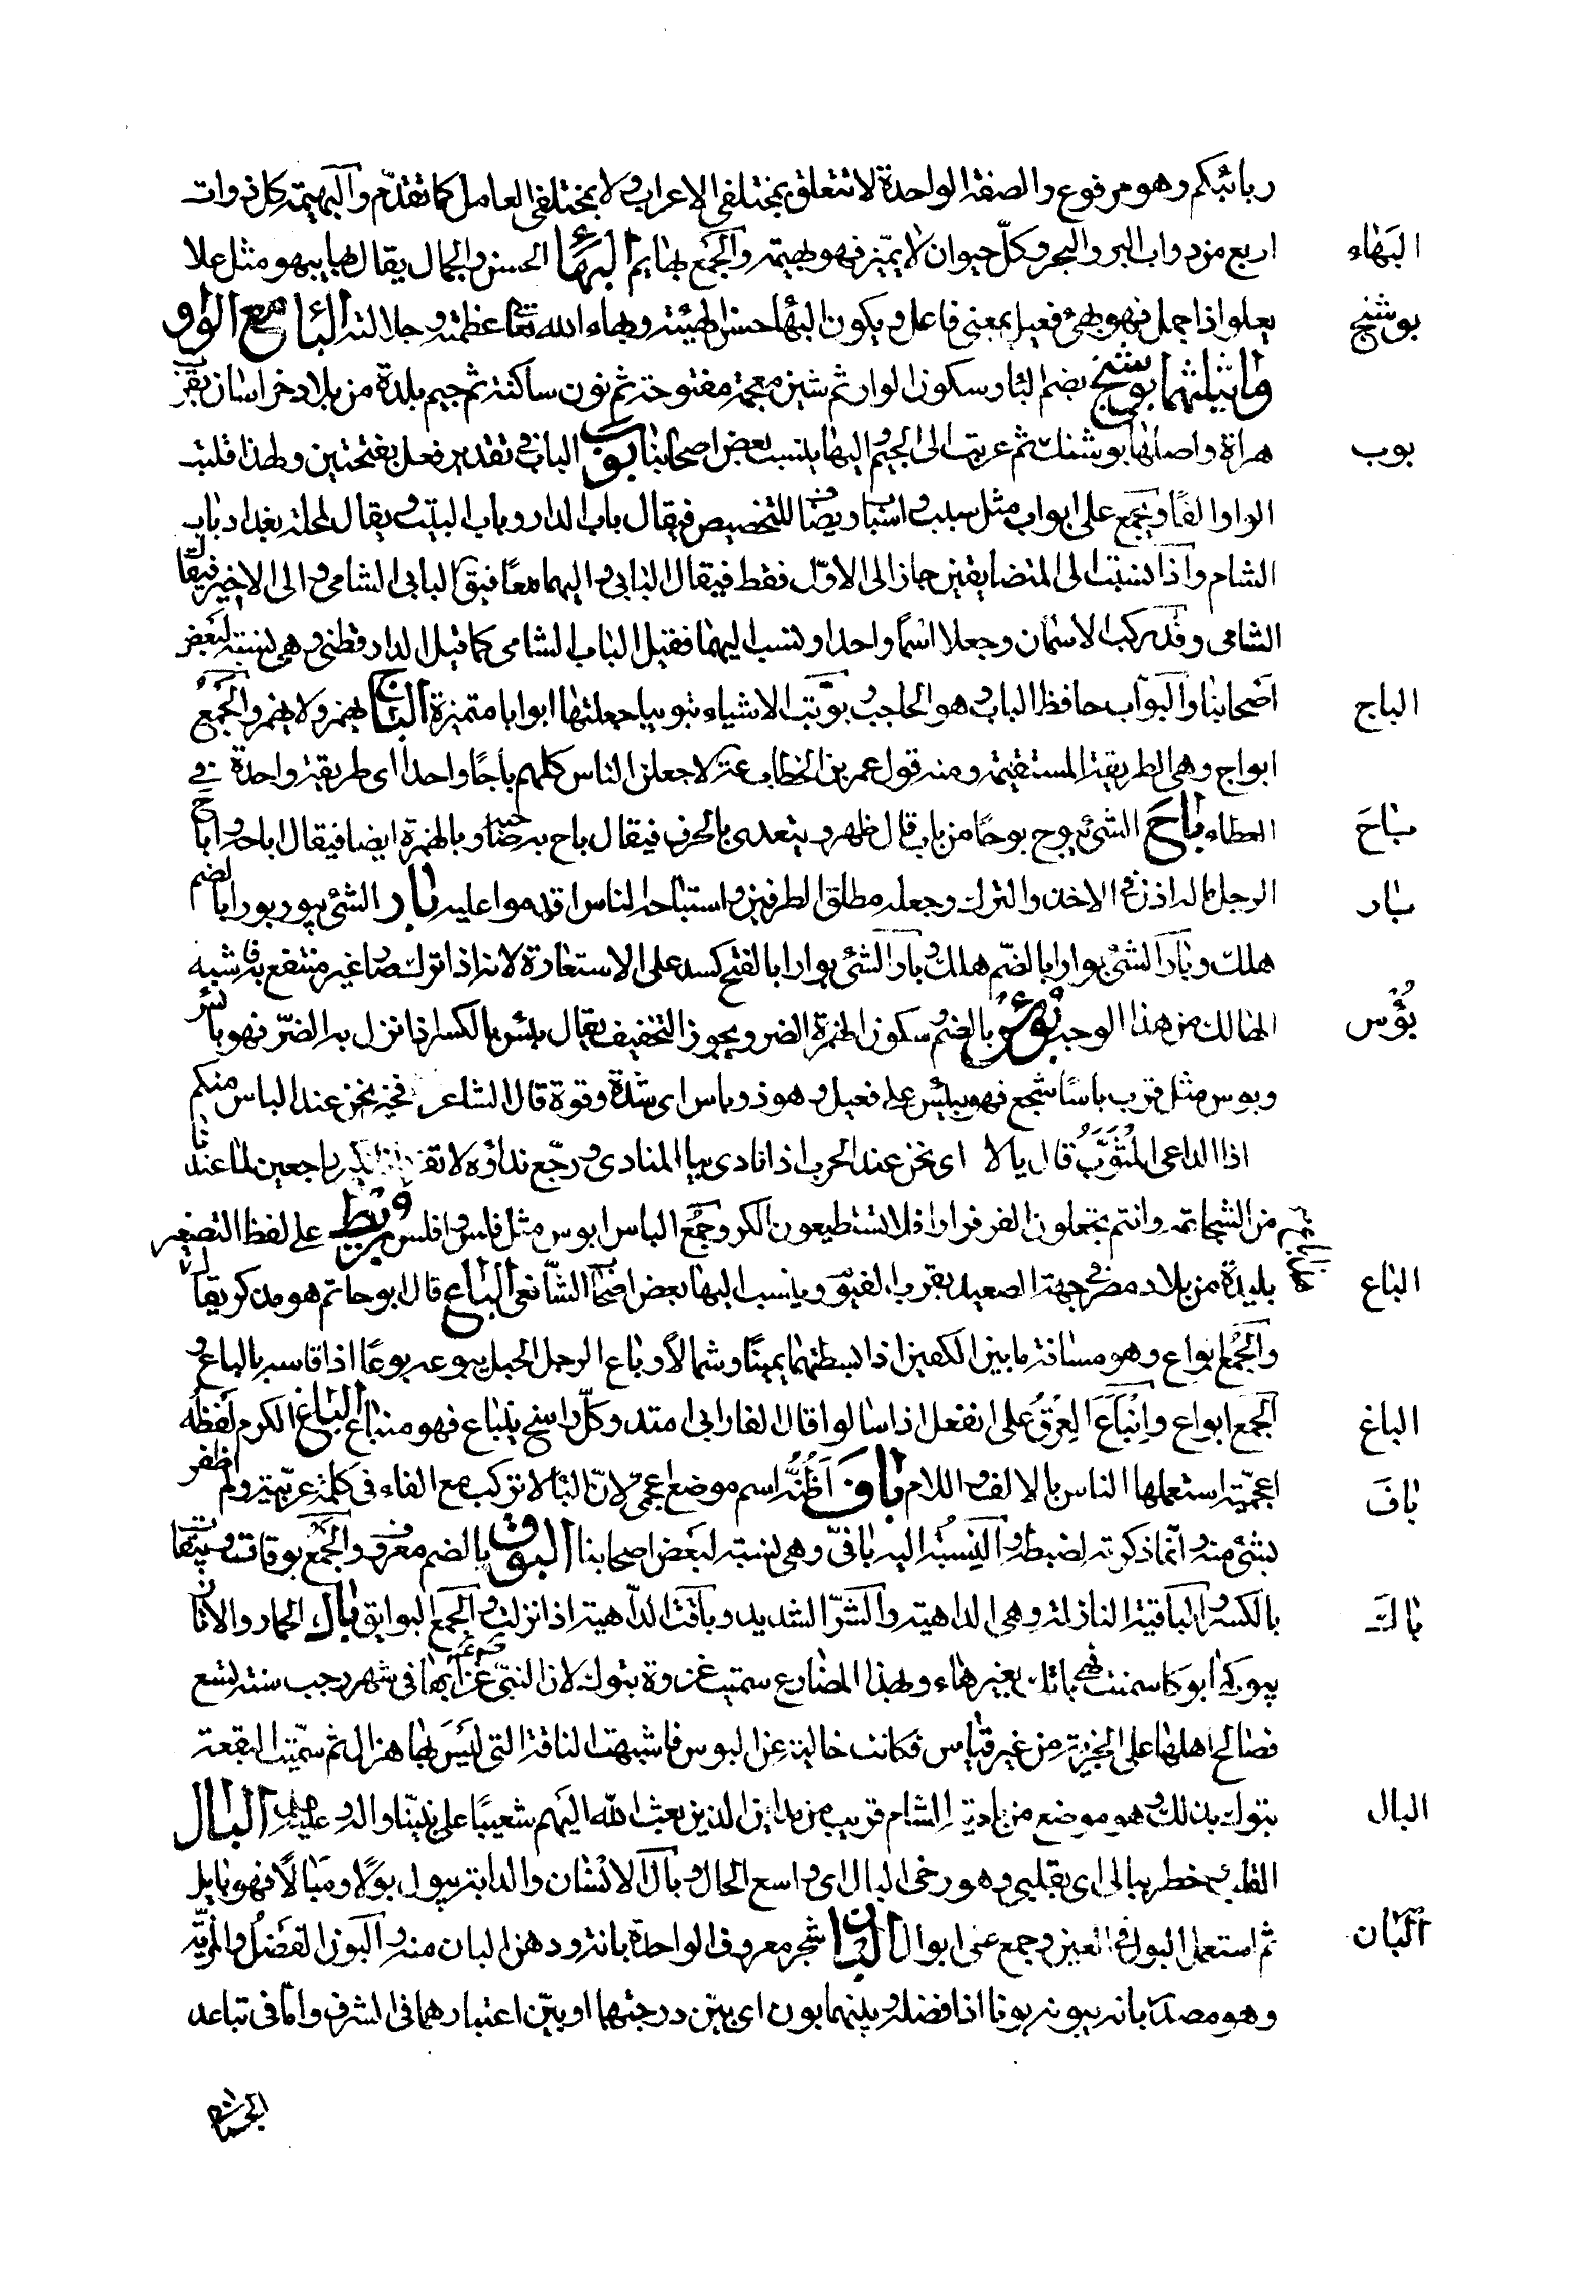 ربائبكم وهو مرفوع والصفة الواحدة لا تتعلق بمختلفي الاعراب ولا بمختلفي العامل كما تقدّم والبهيمة كل ذوات
البَهَاء
اربع من دواب البر والبحر وكلّ حيوان لا يميّز فهو بهيمة والجمع بهايم البهاء الحسن والجمال يقال بها يبهو مثل علا
بوشنج
يعلو اذا جمل فهو بهيّ فعيل بمعنى فاعل ويكون البهاء حسن الهيئة وبهاء الله تعا عظمته وجلالته البا مع الواو
وما يثلثهما بوشنج بضم البا وسكون الواو ثم شين معجمة مفتوحة ثم نون ساكنة ثم جيم بلدة من بلاد خراسان بقرب
بوب
هراة واصلها بوشنك ثم عربت الى الجيم واليها ينسب بعض اصحابنا بوب الباب في تقدير فعل بفتحتين ولهذا قلبت
الواو الفًا ويجمع على ابواب مثل سبب واسباب ويضاف للتخصيص فيقال باب الدار وباب البيت ويقال لمحلة ببغداد باب
الشام واذا نسبت الى المتضايفين جاز الى الاوّل فقط فيقال البابي واليهما معًا فيقال البابي الشامي والى الاخير فيقال
الشامي وقد ركب الاسمان وجعلا اسمًا واحدا ونسب اليهما فقيل البابشامي كما قيل الدارقطني وهي نسبة لبعض
الباج
اصحابنا والبوّاب حافظ الباب وهو الحاجب وبوّبت الاشياء تبويبا جعلتها ابوابا متميزة الباج بهمز ولا بهمز والجمع
ابواج وهي الطريقة المستقيمة ومنه قول عمر بن الخطاب لاجعلن الناس كلهم باجًا واحدا اى طريقة واحدة في
باحَ
العطاء باح الشئ يبوح بوحًا من باب قال ظهر ويتعدى بالحرف فيقال باح به صاحبه وبالهمزة ايضا فيقال اباحه واباح
بار
الرجل ماله اذن في الاخذ والترك وجعله مطلق الطرفين واستباحه الناس اقدموا عليه بار الشئ يبور بورا بالضم
هلك وبار الشئ بوارا بالضّم هلك وبار الشئ بوارا بالفتح كسد على الاستعارة لانه اذا ترك صار غير منتفع به فاشبه
بُؤْس
الهالك من هذا الوجه بؤس بالضم وسكون الهمزة الضر ويجوز التخفيف يقال بئس بالكسر اذا نزل به الضرّ فهو بائس
وبوس مثل قرب باسًا شجع فهو بئيس على فعيل وهو ذو باس اى شدّة وقوة قال الشاعر فخير نحن عند الباس منكم
اذا الداعى المُثَوِّبُ قال يا لا اى نحن عند الحرب اذا نادى بنا المنادى ورجّع نداؤه لا تفروا راجعين لما عندنا
من الشجاعة وانتم تجعلون الفر فرارا فلا تستطيعون الكر وجمع الباس ابوس مثل فلس وافلس بويط على لفظ التصغير
الباع
بليدة من بلاد مصر من جهة الصعيد بقرب الفيوم وينسب اليها بعض اصحاب الشافعى الباع قال ابو حاتم هو مذكر يقال
والجمع ابواع وهو مسافة ما بين الكفين اذا بسطتهما يمينًا وشمالاً وباع الرجل الحبل يبوعه بوعًا اذا قاسه بالباع و
الباغ
الجمع ابواع وانباع العِرقُ على انفعل اذا سال وقال الفارابى امتد وكلّ راسخ ينباع فهو منباع الباغ الكرم لفظه
بافَ
اعجميّة استعملها الناس بالالف واللام باف اظُنُّه اسم موضع اعجمى لانّ البا لا تركب مع الفاء فى كلمة عربية ولم اظفر
بشئ منه وانّما ذكرته لضبطه والنِسبة اليه بافىّ وهى نسبة لبعض اصحابنا البوق بالضم معروف والجمع بوقات وبيقات
باكَ
بالكسر والباقية النازلة وهى الداهية والشرّ الشديد وباقت الداهية اذا نزلت والجمع البوايق باك الحمار والاتان
يبوكها بوكا سمنت فهى باتك بغير هاء وبهذا المضارع سميت غزوة تبوك لان النبىّ غزا بها فى شهر رجب سنة تسع
فصالح اهلها على الجزية من غير قتال فكانت خالية عن البوس فاشبهت الناقة التى ليس بها هزال ثم سمّيت البقعة
البال
تبوك بذلك وهو موضع من بادية الشام قريب من مدين الذين بعث الله اليهم شعيبًا على نبيّنا واله وعليه البال
القلب وخطر ببالى اى بقلبى وهو رخى البال اى واسع الحال وبال الانسان والدابة يبول بَوْلًا ومَبالًا فهو بايل
البان
ثم استعمل البول فى العين وجمع على ابوال البان شجر معروف الواحدة بانة ودهن البان منه والبون الفضل والمزيّة
وهو مصدر بانه يبونه بونا اذا فضله وبينهما بون اى بين درجتهما او بين اعتبارهما فى الشرف وامّا فى تباعد